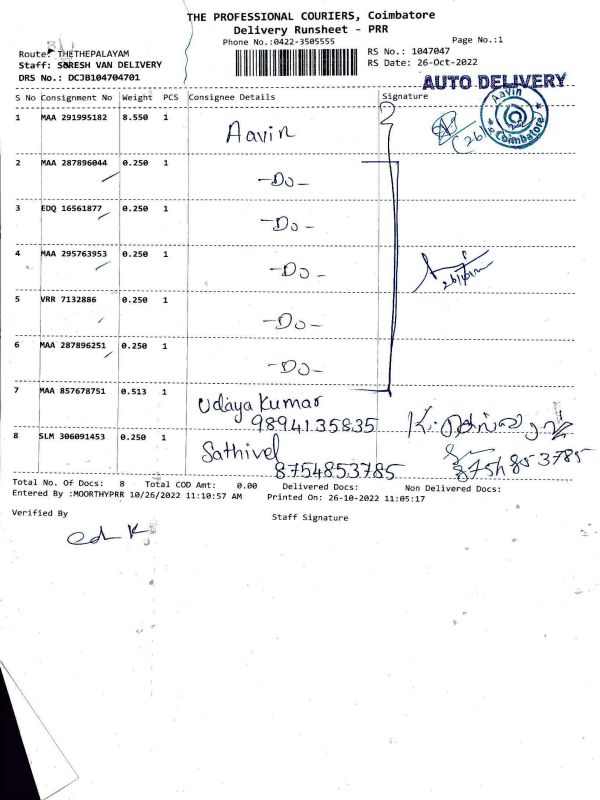 THE PROFESSIONAL COURIERS, Coimbatore
Delivery Runsheet - PRR
Phone No.:0422-3505555 Page No.:1
Route: THETHEPALAYAM RS No.: 1047047
Staff: SURESH VAN DELIVERY RS Date: 26-Oct-2022
DRS No.: DCJB104704701
AUTO DELIVERY
S No Consignment No Weight PCS Consignee Details Signature
Aavin
Coimbatore
1 MAA 291995182 8.550 1 Aavin
2 MAA 287896044 0.250 1 -Do-
3 EDQ 16561877 0.250 1 -Do-
4 MAA 295763953 0.250 1 -Do-
5 VRR 7132886 0.250 1 -Do-
6 MAA 287896251 0.250 1 -Do-
7 MAA 857678751 0.513 1 Udaya kumar
9894135835
8 SLM 306091453 0.250 1 Sathivel
8754853785 8754853785
Total No. Of Docs: 8 Total COD Amt: 0.00 Delivered Docs: Non Delivered Docs:
Entered By :MOORTHYPRR 10/26/2022 11:10:57 AM Printed On: 26-10-2022 11:05:17
Verified By Staff Signature